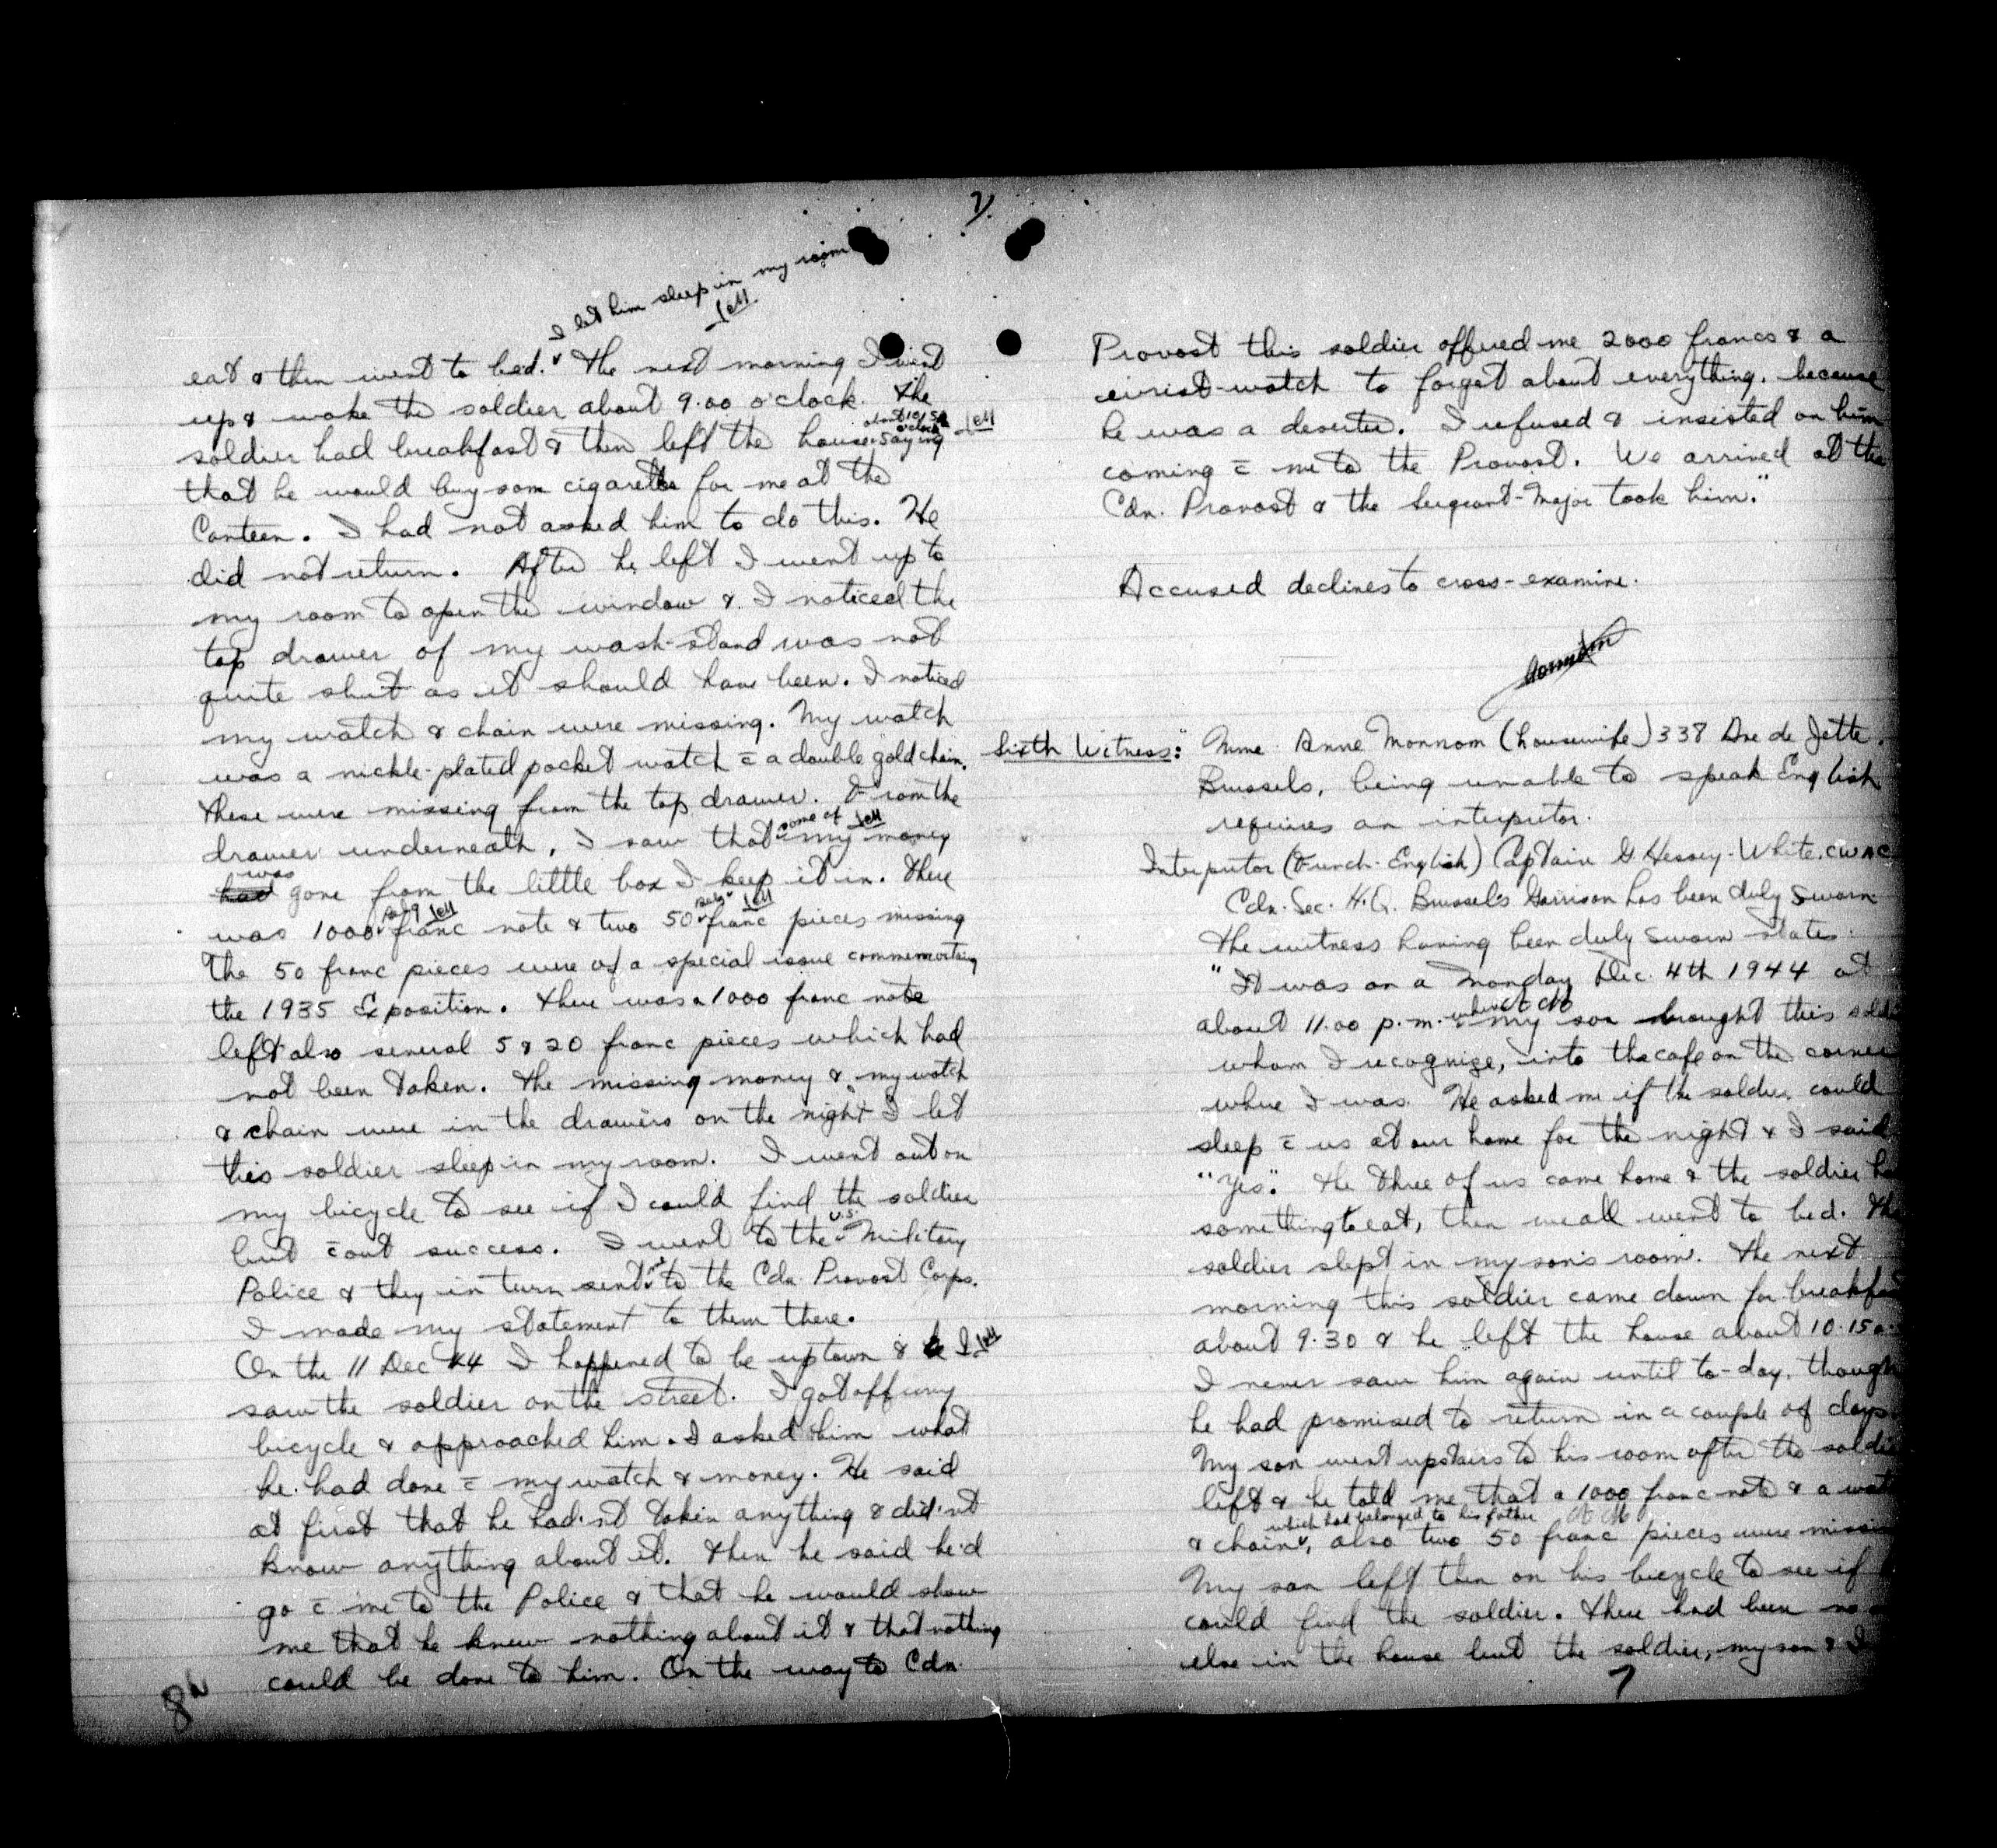 7
I let him sleep in my room
eat & then went to bed. The next morning I went
up & woke the soldier about 9.00 o'clock. The
about 10.15 o'clock
soldier had breakfast & then left the house saying
that he would buy som cigarettes for me at the
Canteen. I had not asked him to do this. He
did not return. After he left I went up to
my room to open the window & I noticed the
top drawer of my wash-stand was not
quite shut as it should have been. I noticed
my watch & chain were missing. My watch
was a nickle-plated pocket watch c̄ a double gold chain.
These were missing from the top drawer. From the
some of
drawer underneath, I saw that my money
was
had gone from the little box I keep it in. There
Belg Belg
was 1000 franc note & two 50 franc pieces missing
The 50 franc pieces were of a special issue commemorating
the 1935 Exposition. There was a 1000 franc note
left also several 5 & 20 franc pieces which had
not been taken. The missing money & my watch
& chain were in the drawers on the night I let
this soldier sleep in my room. I went out on
my bicycle to see if I could find the soldier
U.S.
but c̄out success. I went to the Military
me
Police & they in turn sent to the Cdn Provost Corps.
I made my statement to them there.
On the 11 Dec 44 I happened to be uptown & I
saw the soldier on the street. I got off my
bicycle & approached him. I asked him what
he had done c̄ my watch & money. He said
at first that he had'nt taken anything & did'nt
know anything about it. Then he said he'd
go c̄ me to the Police & that he would show
me that he knew nothing about it & that nothing
could be done to him. On the way to Cdn
8
Provost this soldier offered me 2000 francs & a
wrist-watch to forget about everything, because
he was a deserter. I refused & insisted on him
coming c̄ me to the Provost. We arrived at the
Cdn. Provost & the Sergeant-Major took him."
Accused declines to cross-examine.
Sixth Witness: Mme. Anne Monnom (housewife) 338 Ave de Jette.
Brussels, being unable to speak English
requires an interpretor.
Interpretor (French-English) Captain G Hessey-White, CWAC
Cdn. Sec. H.Q. Brussels Garrison has been duly sworn
The witness having been duly sworn states:
"It was on a Monday Dec. 4th 1944 at
when
about 11.00 p.m. my son brought this
whom I recognize, into the cafe on the corner
where I was. He asked me if the soldier could
sleep c̄ us at our home for the night & I said
"Yes". The three of us came home & the soldier
something to eat, then we all went to bed. The
soldier slept in my son's room. The next
morning this soldier came down for
about 9.30 & he left the house about 10.15
I never saw him again until to-day, though
he had promised to return in a couple of days
My son went upstairs to his room after the
left & he told me that a 1000 franc note & a
which had belonged to his father
& chain, also two 50 franc pieces were
My son left then on his bicycle to see if
could find the soldier. There had been no
else in the house but the soldier, my son & I
7